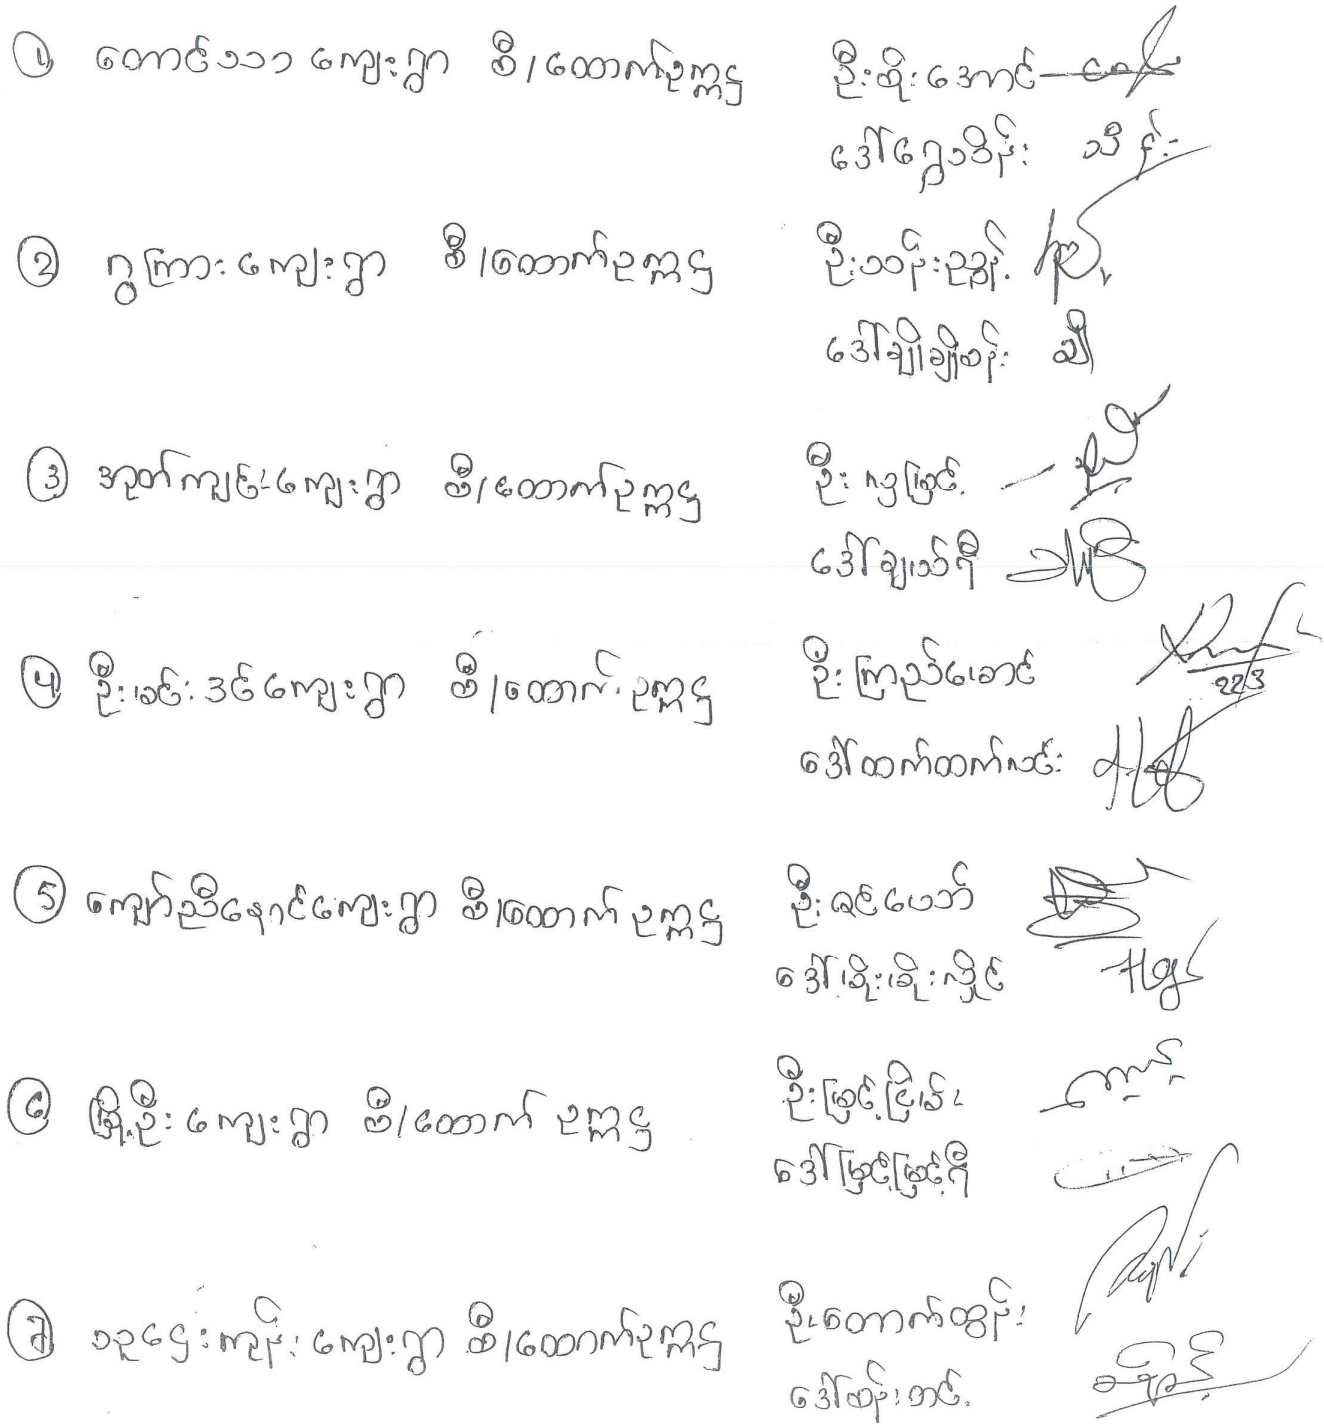 ၁ တောင်သာ ကျေးရွာ စီ/ထောက်ဥက္ကဋ္ဌ ဦးစိုးအောင်
ဒေါ်ရွှေသိန်း သိန်း
၂ ဂွကြားကျေးရွာ စီ/ထောက်ဥက္ကဋ္ဌ ဦးသန်းညွန့်
ဒေါ်ချိုချိုစန်း ချို
၃ အုတ်ကျင်းကျေးရွာ စီ/ထောက်ဥက္ကဋ္ဌ ဦး မြင့်
ဒေါ်ချယ်ရီ
၄ ဦးခင်းဒင်ကျေးရွာ စီ/ထောက်ဥက္ကဋ္ဌ ဦးကြည်အောင်
22/3
ဒေါ်ထက်ထက်လင်း
5 ကျော်ညီနောင်ကျေးရွာ စီ/ထောက်ဥက္ကဋ္ဌ ဦးခင်ဖေဘ်
ဒေါ်ခိုးခိုးလှိုင်
၆ မြို့ဦးကျေးရွာ စီ/ထောက်ဥက္ကဋ္ဌ ဦးမြင့်ငြိမ်း
ဒေါ်မြင့်မြင့်ရီ
၇ သူဌေးကုန်းကျေးရွာ စီ/ထောက်ဥက္ကဋ္ဌ ဦးတောက်ထွန်း
ဒေါ်စန်းတင့်